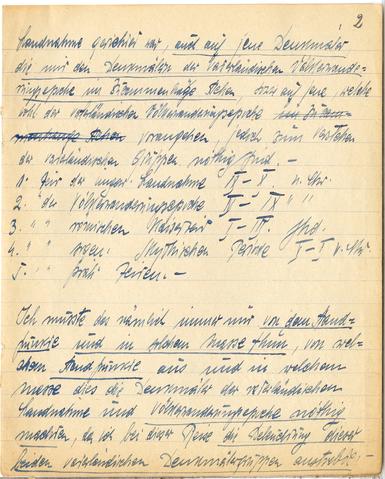 2
Landnahme gerichtet war, und auf jene Denkmäler
die mit den Denkmälern der vaterländischen Völkerwande-
rungsepoche im Zusammenhäge stehen oder auf jene, welche
wohl der vaterländischen Völkerwanderungsepoche im Zusam-
menhange stehen vorangehen, jedoch zum Verstehen
der vaterländischen Gruppen nöthig sind. —
1. Für der ungar. Landnahme IX – X n. Chr.
2. " die Völkerwanderungsepoche I – IX " "
3. " " römischen Kaiserzeit I – III. Jhd.
4. " " Skythischen Periode I – I v. Chr.
5. " " präh. Zeiten. —
Ich musste das nämlich immer nur von dem Stand-
punkte und in solchem Masse thun, von wel-
chem Standpunkte aus und in welchem
Masse dies die Denkmäler der vaterländischen
Landnahme und Völkerwanderungsepoche nöthig
machten, da ich bei dieser Reise die Beleuchtung dieser
beiden vaterländischen Denkmälergruppen anstrebte. —